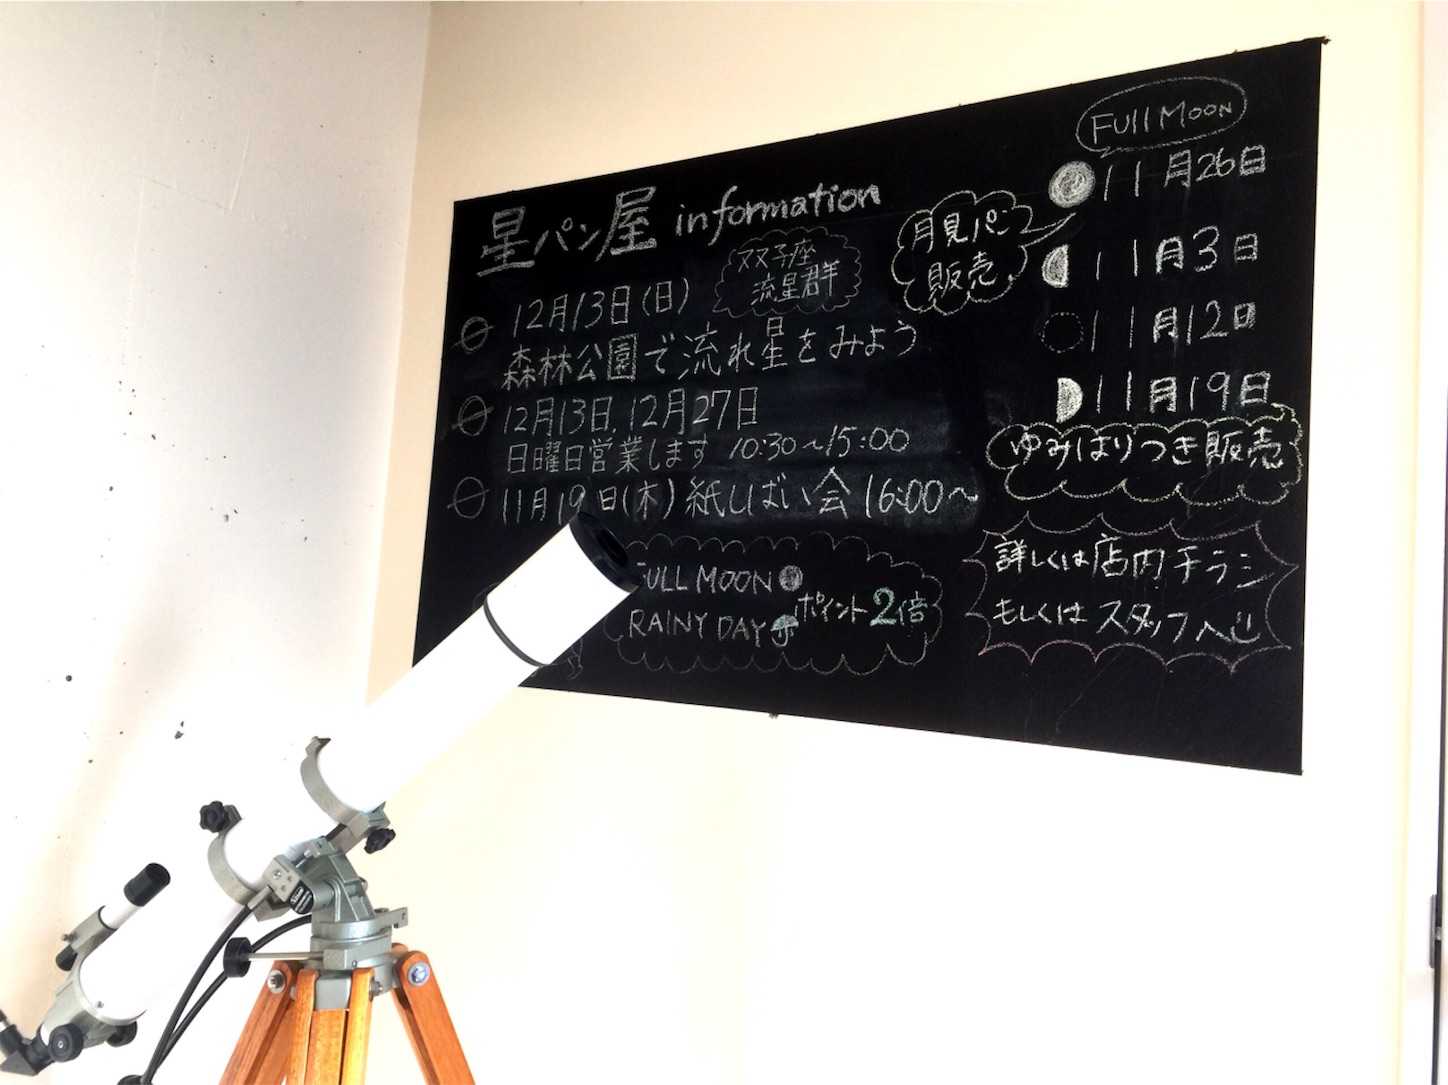 星パン屋 information
双子座
流星群
12月13日(日)
森林公園で流れ星をみよう
12月13日, 12月27日
日曜日営業します 10:30~15:00
11月19日(木) 紙しばい会 16:00~
FULL MOON
RAINY DAY
ポイント2倍
Full Moon
11月26日
月見パン
販売
11月3日
11月12日
11月19日
ゆみはりつき販売
詳しくは店内チラシ
もしくはスタッフへ